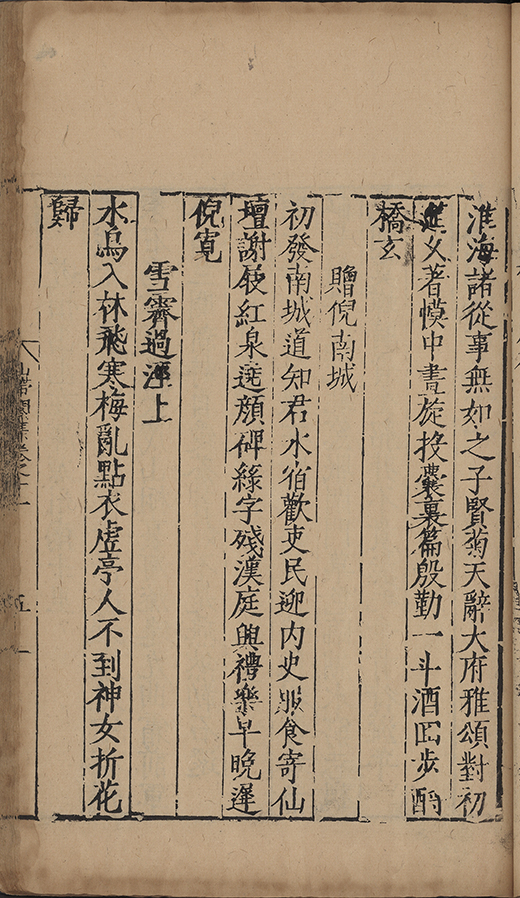 淮海諸從事無如之子賢菊天辭大府雅頌對初
筵久著幙中畫旋投囊裏篇殷勤一斗酒回步酹
橋玄
贈倪南城
初發南城道知君水宿歡吏民迎内史服食寄仙
壇謝屐紅泉遶顔碑綠字殘漢庭興禮樂早晚遲
倪寬
雪霽過溼上
水鳥入林飛寒梅亂點衣虛亭人不到神女折花
歸